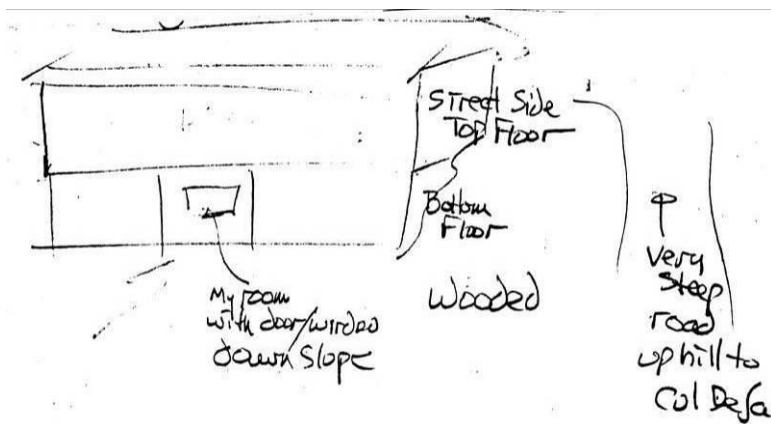 Street Side
Top Floor
Bottom
Floor
My room
with door/window
down slope
Wooded
Very
Steep
road
uphill to
Cul Desa